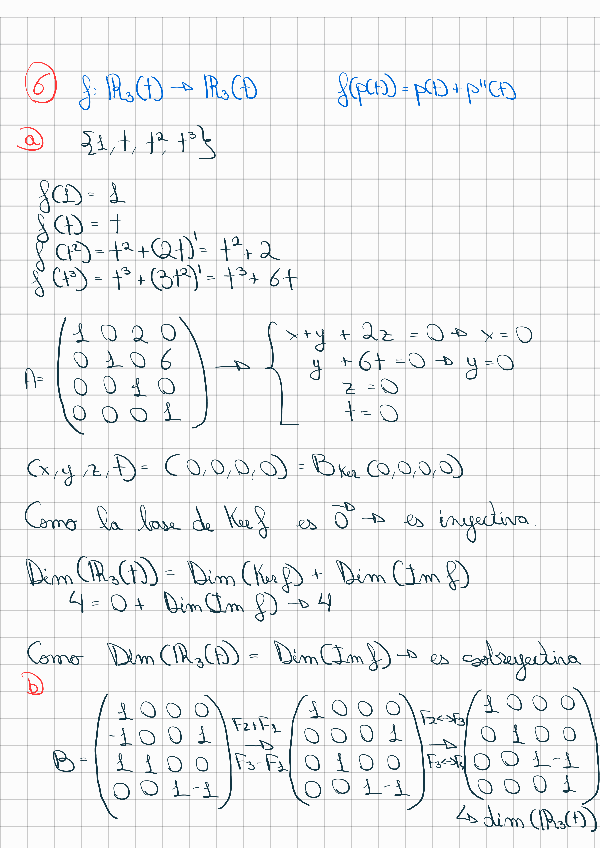 6 f: ℝ₃(t) → ℝ₃(t) f(p(t)) = p(t) + p''(t)
a {1, t, t², t³}
f(1) = 1
f(t) = t
f(t²) = t² + (2t)' = t² + 2
f(t³) = t³ + (3t²)' = t³ + 6t
A = (1 0 2 0 → { x+y + 2z = 0 → x = 0
0 1 0 6 y + 6t = 0 → y = 0
0 0 1 0 z = 0
0 0 0 1) t = 0
(x, y, z, t) = (0, 0, 0, 0) = B Ker (0, 0, 0, 0)
Como la base de Ker f es 0⃗ → es inyectiva.
Dim (ℝ₃(t)) = Dim (Ker f) + Dim (Im f)
4 = 0 + Dim (Im f) → 4
Como Dim (ℝ₃(t)) = Dim (Im f) → es sobreyectiva
b
B = (1 0 0 0 (1 0 0 0 (1 0 0 0
-1 0 0 1 F2+F1 → 0 0 0 1 F2↔F3 → 0 1 0 0
1 1 0 0 F3-F1 0 1 0 0 F3↔F4 0 0 1 -1
0 0 1 -1) 0 0 1 -1) 0 0 0 1)
↳ dim (ℝ₃(t))